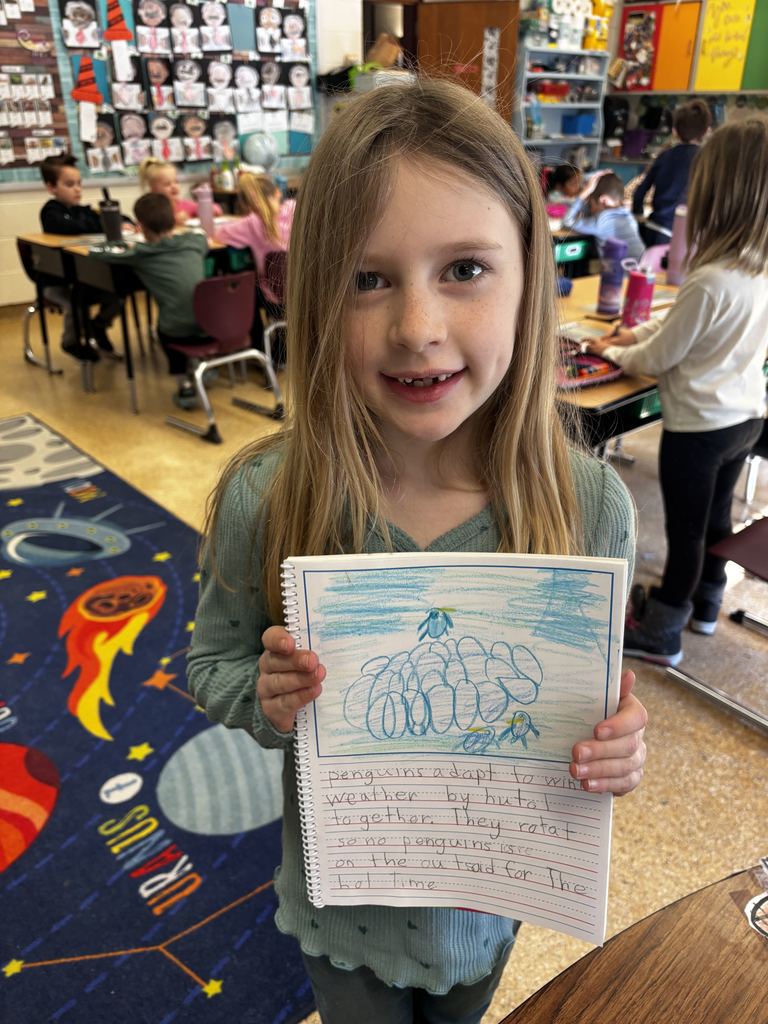 penguins adapt to win
weather by hutol
together. They rotat
so no penguins is
on the outsaid for The
hol Time
URANUS